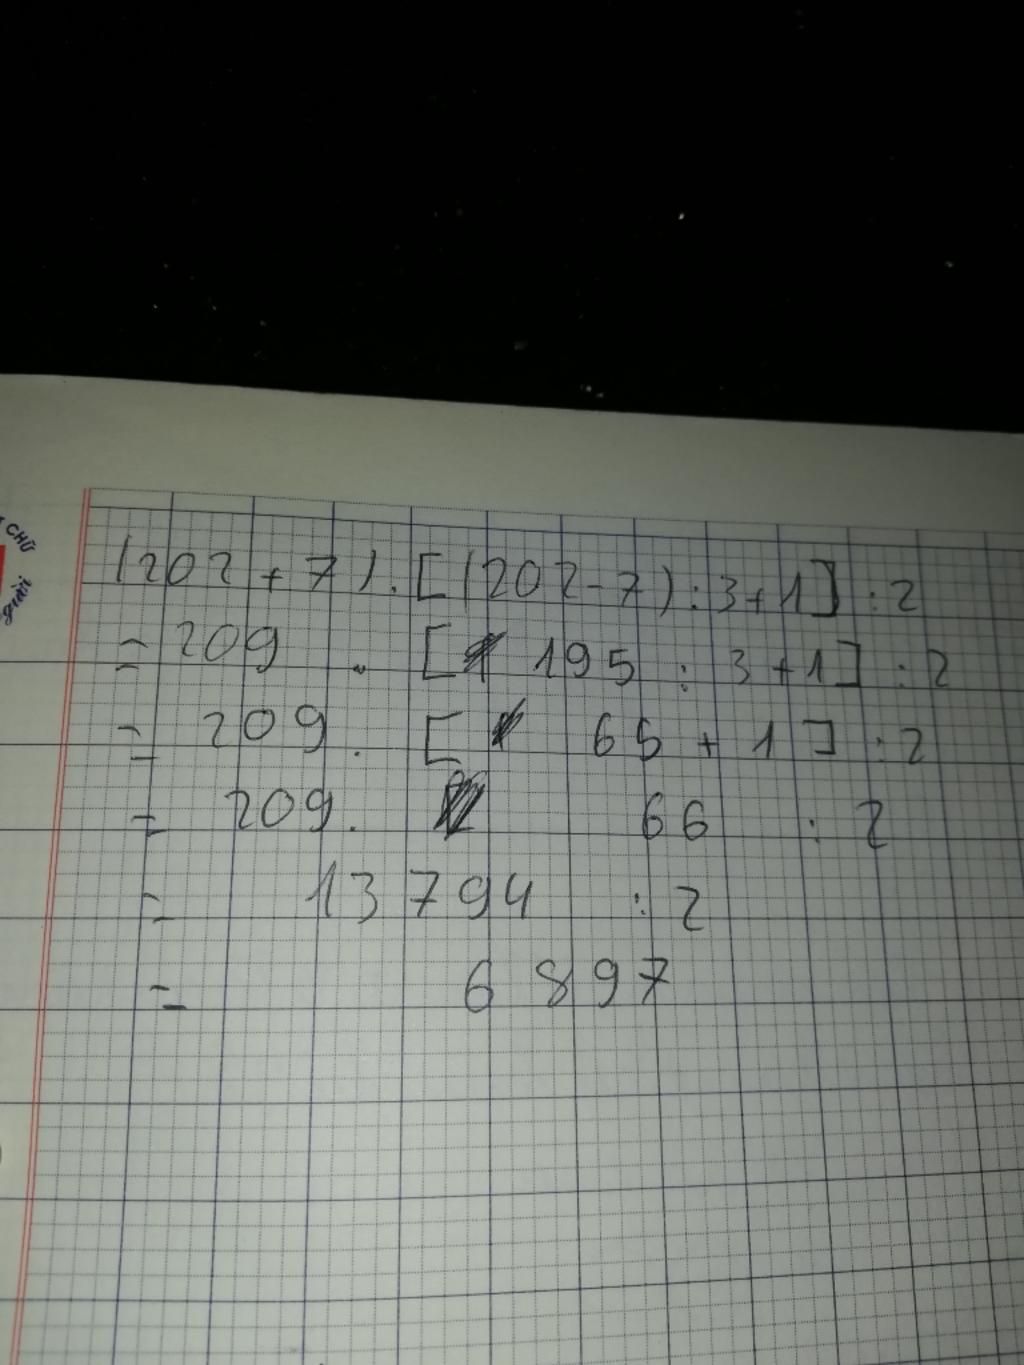 (202 + 7) . [(202 - 7) : 3 + 1] : 2
= 209 . [ 195 : 3 + 1] : 2
= 209 . [ 65 + 1 ] : 2
= 209 . 66 : 2
= 13794 : 2
= 6897
CHỮ